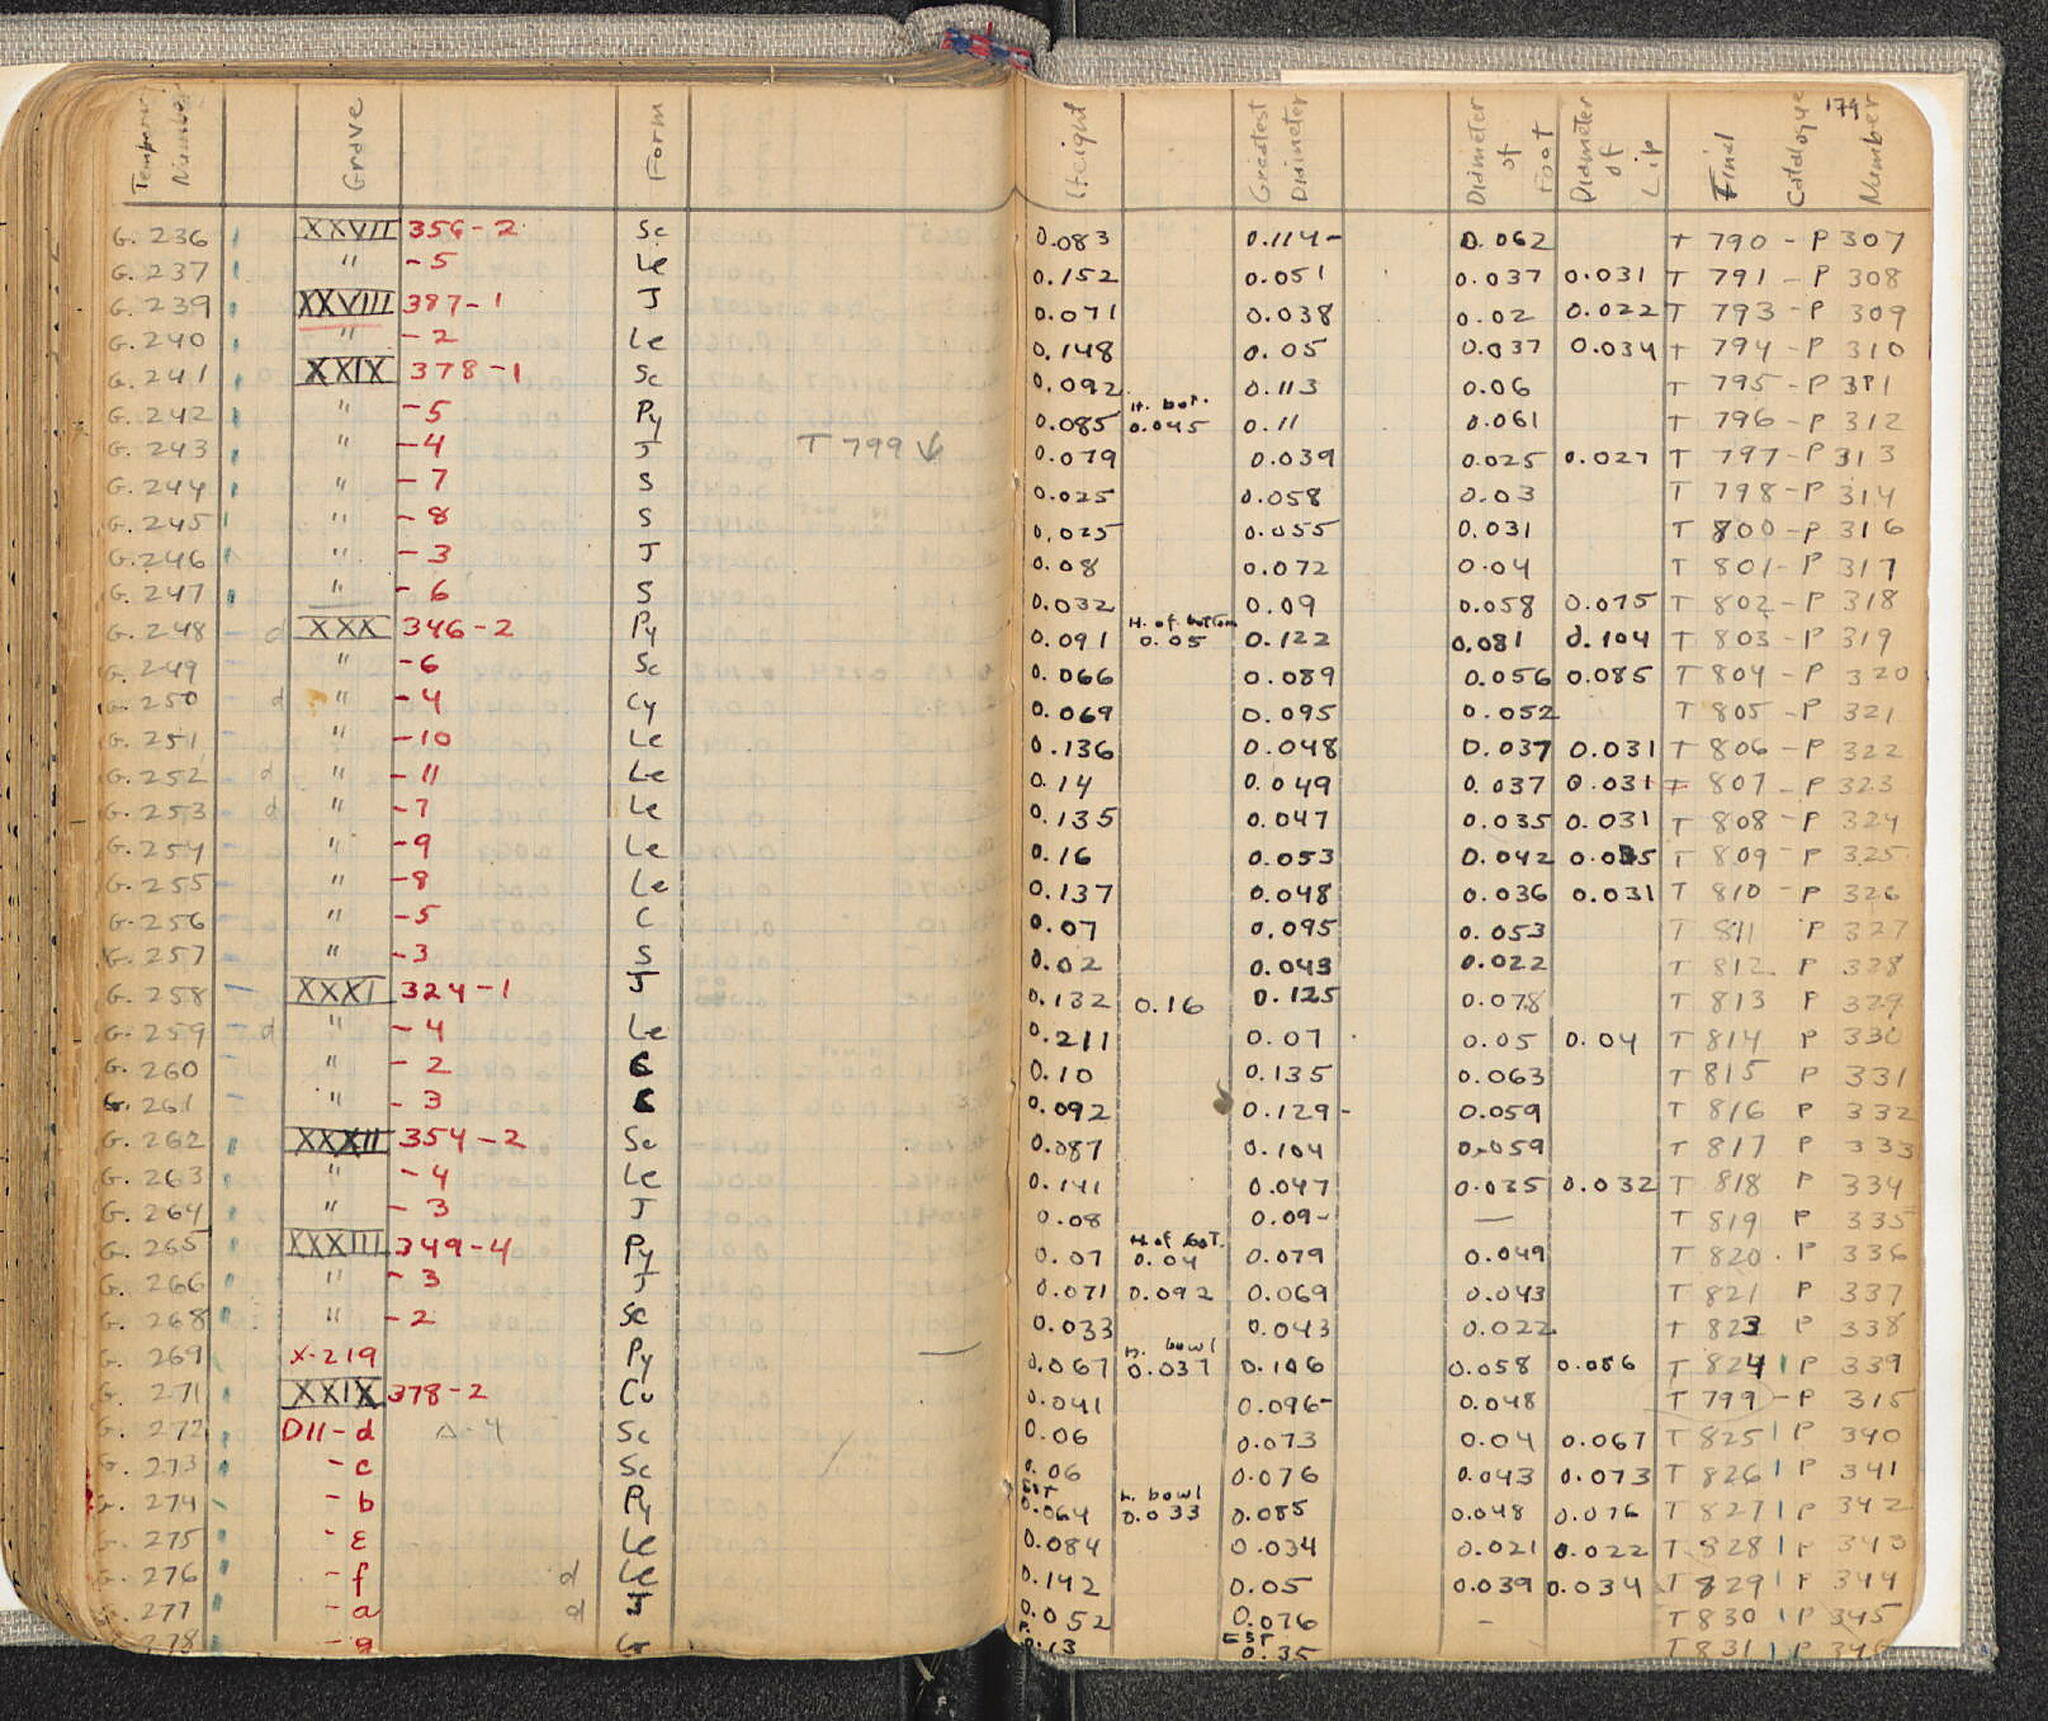 179
Temporary Number Grave Form Height Greatest Diameter Diameter of Foot Diameter of Lip Final Catalogue Number
G. 236 XXVII 356-2 Sc 0.083 0.114- 0.062 T 790 - P 307
G. 237 " -5 Le 0.152 0.051 0.037 0.031 T 791 - P 308
G. 239 XXVIII 387-1 J 0.071 0.038 0.02 0.022 T 793 - P 309
G. 240 " -2 Le 0.148 0.05 0.037 0.034 T 794 - P 310
G. 241 XXIX 378-1 Sc 0.092 0.113 0.06 T 795 - P 311
G. 242 " -5 Py 0.085 H. bot. 0.045 0.11 0.061 T 796 - P 312
G. 243 " -4 J T 799 ↓ 0.079 0.039 0.025 0.027 T 797 - P 313
G. 244 " -7 S 0.025 0.058 0.03 T 798 - P 314
G. 245 " -8 S 0.025 0.055 0.031 T 800 - P 316
G. 246 " -3 J 0.08 0.072 0.04 T 801 - P 317
G. 247 " -6 S 0.032 0.09 0.058 0.075 T 802 - P 318
G. 248 - d XXX 346-2 Py 0.091 H. of bottom 0.05 0.122 0.081 0.104 T 803 - P 319
G. 249 - " -6 Sc 0.066 0.089 0.056 0.085 T 804 - P 320
G. 250 - d " -4 Cy 0.069 0.095 0.052 T 805 - P 321
G. 251 - " -10 Le 0.136 0.048 0.037 0.031 T 806 - P 322
G. 252 - d " -11 Le 0.14 0.049 0.037 0.031 T 807 - P 323
G. 253 - d " -7 Le 0.135 0.047 0.035 0.031 T 808 - P 324
G. 254 - " -9 Le 0.16 0.053 0.042 0.035 T 809 - P 325
G. 255 - " -8 Le 0.137 0.048 0.036 0.031 T 810 - P 326
G. 256 - " -5 C 0.07 0.095 0.053 T 811 P 327
G. 257 - " -3 S 0.02 0.043 0.022 T 812 P 328
G. 258 - XXXI 324-1 J 0.132 0.16 0.125 0.078 T 813 P 329
G. 259 - d " -4 Le 0.211 0.07 0.05 0.04 T 814 P 330
G. 260 - " -2 C 0.10 0.135 0.063 T 815 P 331
G. 261 - " -3 C 0.092 0.129- 0.059 T 816 P 332
G. 262 XXXII 354-2 Sc 0.087 0.104 0.059 T 817 P 333
G. 263 " -4 Le 0.141 0.047 0.035 0.032 T 818 P 334
G. 264 " -3 J 0.08 0.09- — T 819 P 335
G. 265 XXXIII 349-4 Py 0.07 H. of bot. 0.04 0.079 0.049 T 820 . P 336
G. 266 " -3 J 0.071 0.092 0.069 0.043 T 821 P 337
G. 268 " -2 Sc 0.033 0.043 0.022 T 823 P 338
G. 269 X-219 Py — 0.067 H. bowl 0.037 0.106 0.058 0.086 T 824 | P 339
G. 271 XXIX 378-2 Cv 0.041 0.096- 0.048 T 799 - P 315
G. 272 D11-d Δ-4 Sc 0.06 0.073 0.04 0.067 T 825 | P 340
G. 273 -c Sc 0.06 0.076 0.043 0.073 T 826 | P 341
G. 274 -b Py EST 0.064 H. bowl 0.033 0.085 0.048 0.076 T 827 | P 342
G. 275 -ε Le 0.084 0.034 0.021 0.022 T 828 | P 343
G. 276 -f d Le 0.142 0.05 0.039 0.034 T 829 | P 344
G. 277 -a d J 0.052 0.076 - T 830 | P 345
278 0.13 EST 0.35 T 831 | P 346